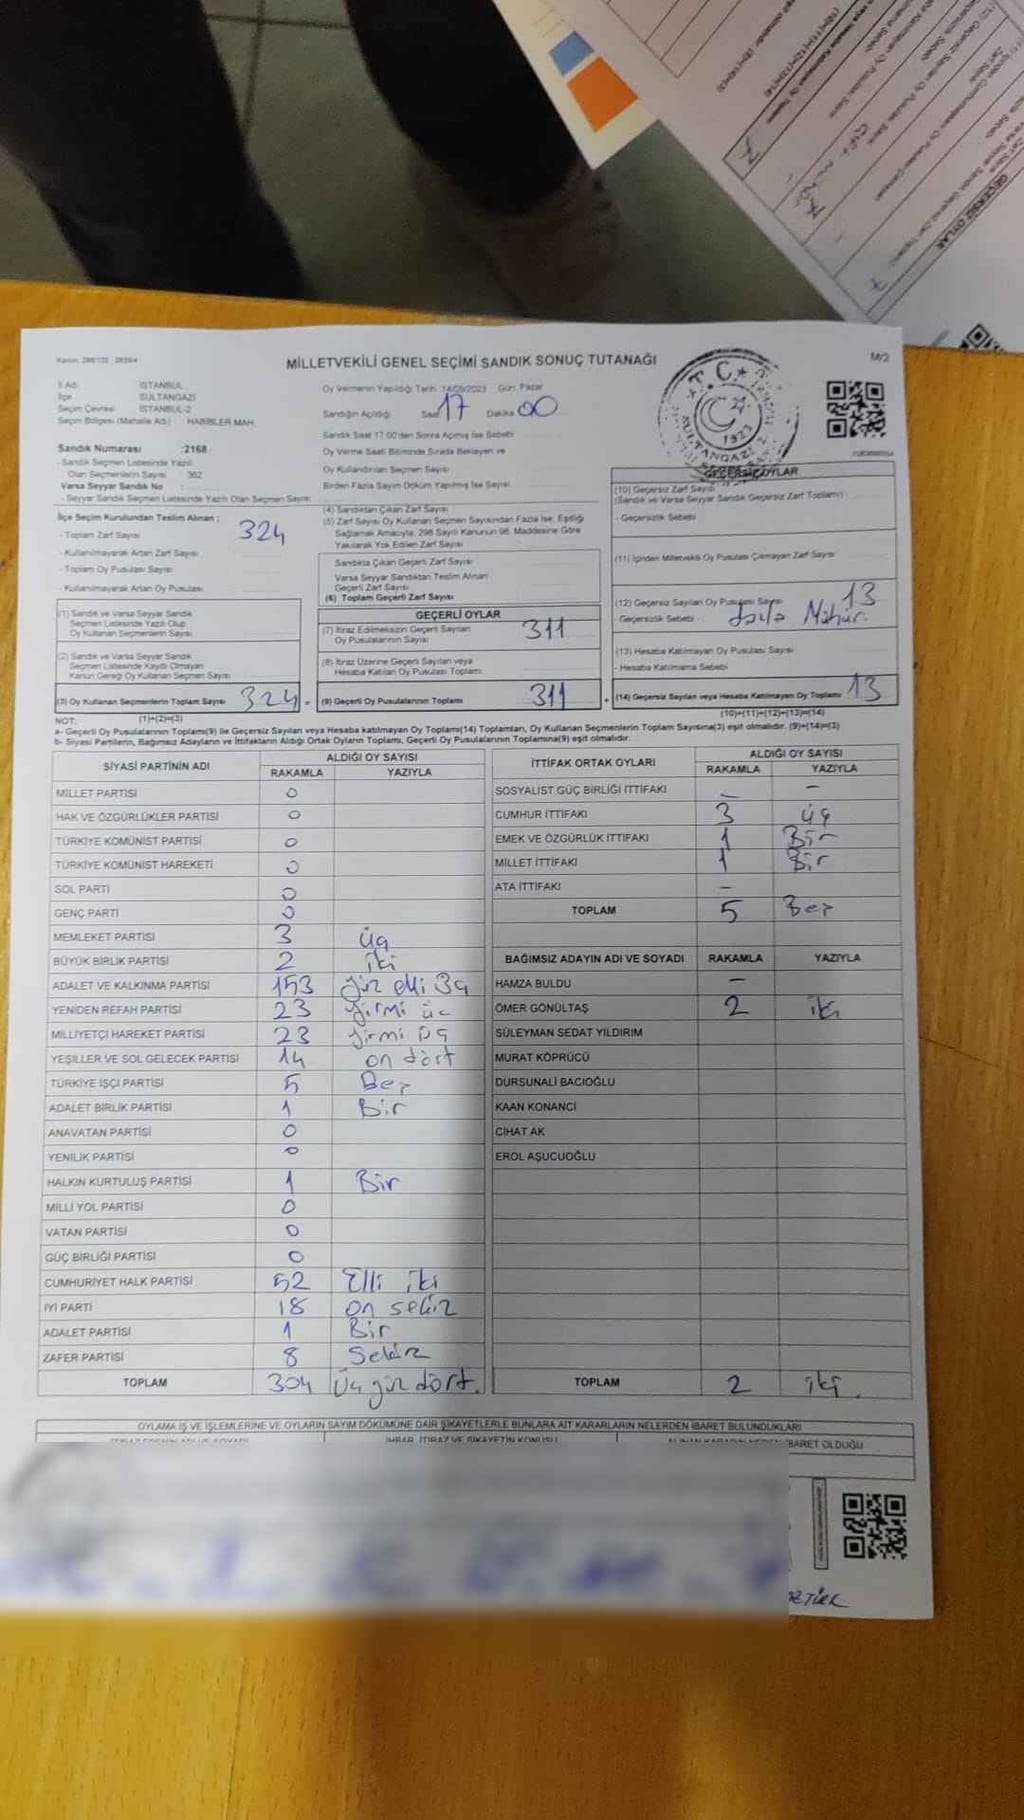 MİLLETVEKİLİ GENEL SEÇİMİ SANDIK SONUÇ TUTANAĞI
M/2
İl Adı : İSTANBUL
İlçe : SULTANGAZİ
Seçim Çevresi : İSTANBUL-2
Seçim Bölgesi (Mahalle Adı) : HABİBLER MAH.
Sandık Numarası :2168
- Sandık Seçmen Listesinde Yazılı
Olan Seçmenlerin Sayısı : 362
Varsa Seyyar Sandık No :
- Seyyar Sandık Seçmen Listesinde Yazılı Olan Seçmen Sayısı
Oy Vermenin Yapıldığı Tarih: 14/05/2023 Gün: Pazar
Sandığın Açıldığı Saat 17 Dakika 00
Sandık Saat 17:00'den Sonra Açılmış İse Sebebi
Oy Verme Saati Bitiminde Sırada Bekleyen ve
Oy Kullandırılan Seçmen Sayısı
Birden Fazla Sayım Döküm Yapılmış İse Sayısı
T.C.
SULTANGAZİ
1923
İlçe Seçim Kurulundan Teslim Alınan :
- Toplam Zarf Sayısı 324
- Kullanılmayarak Artan Zarf Sayısı
- Toplam Oy Pusulası Sayısı
- Kullanılmayarak Artan Oy Pusulası
(1) Sandık ve Varsa Seyyar Sandık
Seçmen Listesinde Yazılı Olup
Oy Kullanan Seçmenlerin Sayısı
(2) Sandık ve Varsa Seyyar Sandık
Seçmen Listesinde Kaydı Olmayan
Kanun Gereği Oy Kullanan Seçmen Sayısı
(3) Oy Kullanan Seçmenlerin Toplam Sayısı 324 =
(1)+(2)=(3)
(4) Sandıktan Çıkan Zarf Sayısı
(5) Zarf Sayısı Oy Kullanan Seçmen Sayısından Fazla İse, Eşitliği
Sağlamak Amacıyla, 298 Sayılı Kanunun 98. Maddesine Göre
Yakılarak Yok Edilen Zarf Sayısı
Sandıkta Çıkan Geçerli Zarf Sayısı
Varsa Seyyar Sandıktan Teslim Alınan
Geçerli Zarf Sayısı
(6) Toplam Geçerli Zarf Sayısı
GEÇERLİ OYLAR
(7) İtiraz Edilmeksizin Geçerli Sayılan
Oy Pusulalarının Sayısı 311
(8) İtiraz Üzerine Geçerli Sayılan veya
Hesaba Katılan Oy Pusulası Toplamı
(9) Geçerli Oy Pusulalarının Toplamı 311 +
GEÇERSİZ OYLAR
(10) Geçersiz Zarf Sayısı
(Sandık ve Varsa Seyyar Sandık Geçersiz Zarf Toplamı)
- Geçersizlik Sebebi
(11) İçinden Milletvekili Oy Pusulası Çıkmayan Zarf Sayısı
(12) Geçersiz Sayılan Oy Pusulası Sayısı 13
Geçersizlik Sebebi Mühür.
(13) Hesaba Katılmayan Oy Pusulası Sayısı
- Hesaba Katılmama Sebebi
(14) Geçersiz Sayılan veya Hesaba Katılmayan Oy Toplamı 13
(10)+(11)+(12)+(13)=(14)
NOT:
a- Geçerli Oy Pusulalarının Toplamı(9) ile Geçersiz Sayılan veya Hesaba katılmayan Oy Toplamı(14) Toplamları, Oy Kullanan Seçmenlerin Toplam Sayısına(3) eşit olmalıdır. (9)+(14)=(3)
b- Siyasi Partilerin, Bağımsız Adayların ve İttifakların Aldığı Ortak Oyların Toplamı, Geçerli Oy Pusulalarının Toplamına(9) eşit olmalıdır.
SİYASİ PARTİNİN ADI
ALDIĞI OY SAYISI
RAKAMLA YAZIYLA
MİLLET PARTİSİ 0
HAK VE ÖZGÜRLÜKLER PARTİSİ 0
TÜRKİYE KOMÜNİST PARTİSİ 0
TÜRKİYE KOMÜNİST HAREKETİ 0
SOL PARTİ 0
GENÇ PARTİ 0
MEMLEKET PARTİSİ 3 üç
BÜYÜK BİRLİK PARTİSİ 2 iki
ADALET VE KALKINMA PARTİSİ 153 yüz elli 3ç
YENİDEN REFAH PARTİSİ 23 yirmi üç
MİLLİYETÇİ HAREKET PARTİSİ 23 yirmi üç
YEŞİLLER VE SOL GELECEK PARTİSİ 14 on dört
TÜRKİYE İŞÇİ PARTİSİ 5 Beş
ADALET BİRLİK PARTİSİ 1 Bir
ANAVATAN PARTİSİ 0
YENİLİK PARTİSİ 0
HALKIN KURTULUŞ PARTİSİ 1 Bir
MİLLİ YOL PARTİSİ 0
VATAN PARTİSİ 0
GÜÇ BİRLİĞİ PARTİSİ 0
CUMHURİYET HALK PARTİSİ 52 Elli iki
İYİ PARTİ 18 on sekiz
ADALET PARTİSİ 1 Bir
ZAFER PARTİSİ 8 Sekiz
TOPLAM 304 Üç yüz dört.
İTTİFAK ORTAK OYLARI
ALDIĞI OY SAYISI
RAKAMLA YAZIYLA
SOSYALİST GÜÇ BİRLİĞİ İTTİFAKI – –
CUMHUR İTTİFAKI 3 üç
EMEK VE ÖZGÜRLÜK İTTİFAKI 1 Bir
MİLLET İTTİFAKI 1 Bir
ATA İTTİFAKI –
TOPLAM 5 Beş
BAĞIMSIZ ADAYIN ADI VE SOYADI RAKAMLA YAZIYLA
HAMZA BULDU –
ÖMER GÖNÜLTAŞ 2 iki
SÜLEYMAN SEDAT YILDIRIM
MURAT KÖPRÜCÜ
DURSUNALİ BACIOĞLU
KAAN KONANCİ
CİHAT AK
EROL AŞUCUOĞLU
TOPLAM 2 iki.
OYLAMA İŞ VE İŞLEMLERİNE VE OYLARIN SAYIM DÖKÜMÜNE DAİR ŞİKAYETLERLE BUNLARA AİT KARARLARIN NELERDEN İBARET BULUNDUKLARI
İHBAR, İTİRAZ VE ŞİKAYETİN KONUSU
İBARET OLDUĞU